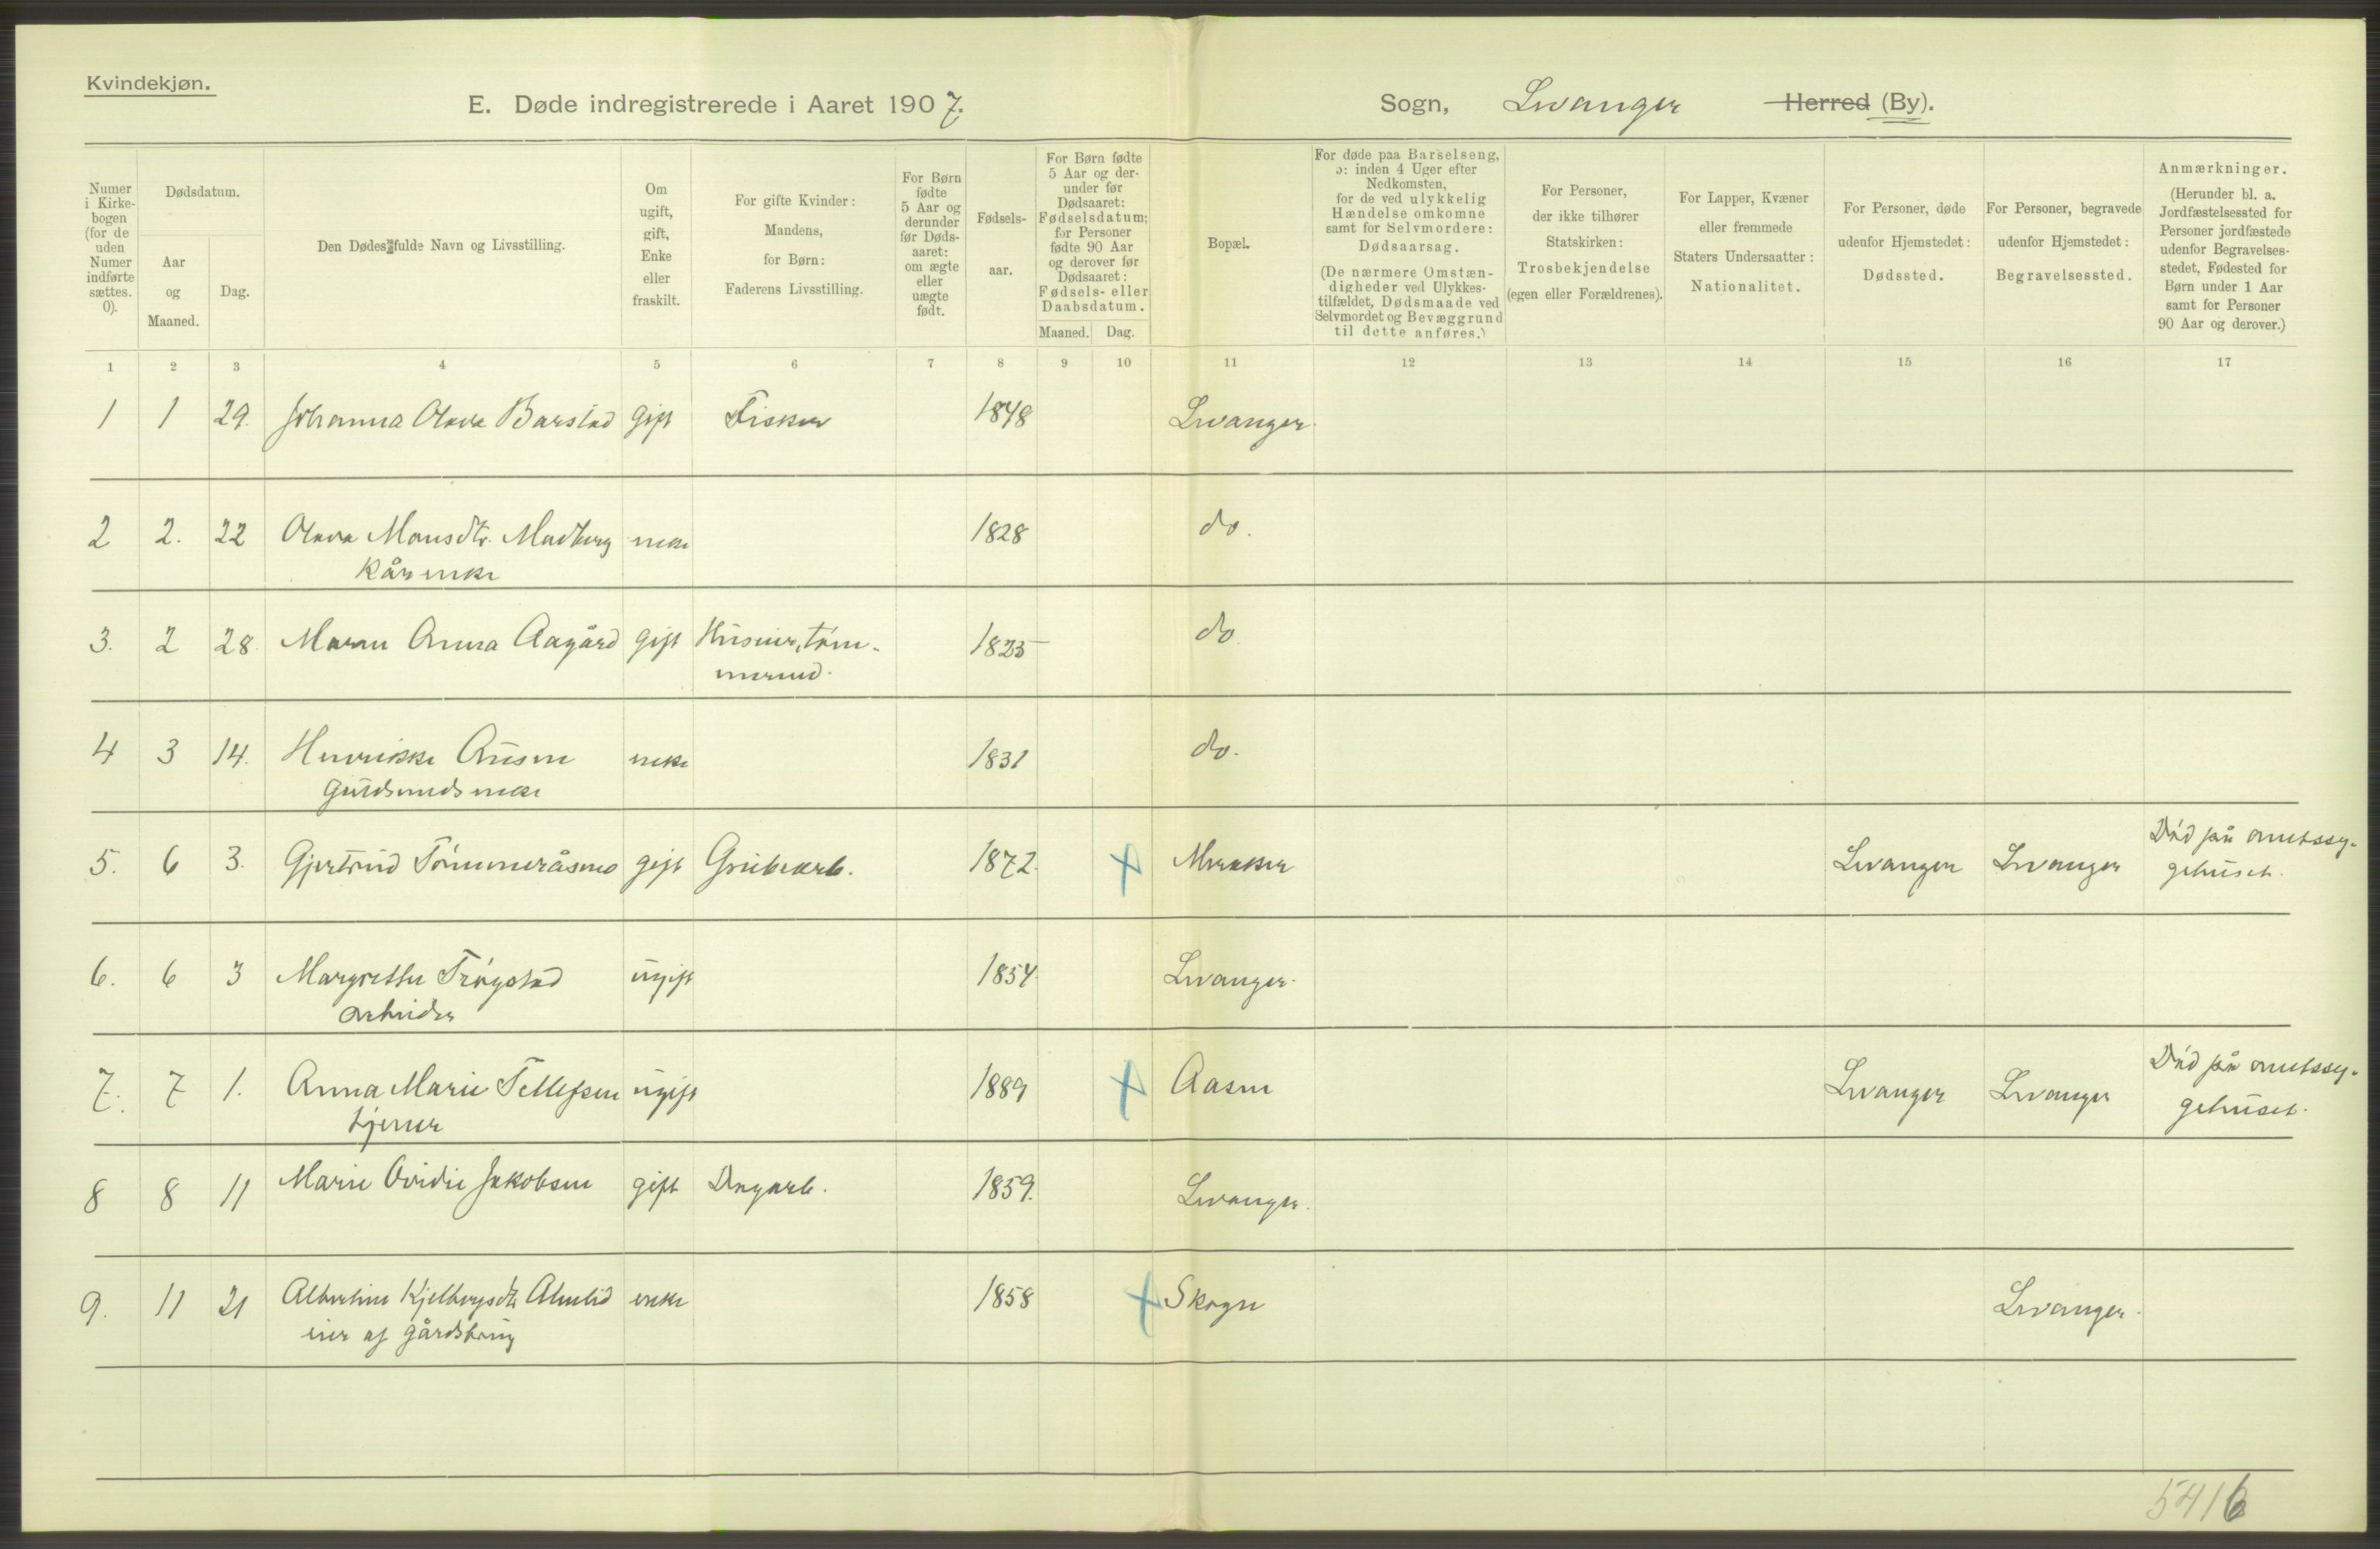 Kvindekjøn.
E. Døde indregistrerede i Aaret 1907. Sogn, Levanger Herred (By).
Numer i Kirkebogen (for de uden Numer indførte sættes. 0).
Dødsdatum.
Aar og Maaned.
Dag.
Den Dødes fulde Navn og Livsstilling.
Om ugift, gift, Enke eller fraskilt.
For gifte Kvinder: Mandens, for Børn: Faderens Livsstilling.
For Børn fødte 5 Aar og derunder før Dødsaaret: om ægte eller uægte født.
Fødselsaar.
For Børn fødte 5 Aar og derunder før Dødsaaret: Fødselsdatum; for Personer fødte 90 Aar og derover før Dødsaaret: Fødsels- eller Daabsdatum.
Maaned. Dag.
Bopæl.
For døde paa Barselseng, ɔ: inden 4 Uger efter Nedkomsten, for de ved ulykkelig Hændelse omkomne samt for Selvmordere: Dødsaarsag.
(De nærmere Omstændigheder ved Ulykkestilfældet, Dødsmaade ved Selvmordet og Bevæggrund til dette anføres.)
For Personer, der ikke tilhører Statskirken: Trosbekjendelse (egen eller Forældrenes).
For Lapper, Kvæner eller fremmede Staters Undersaatter: Nationalitet.
For Personer, døde udenfor Hjemstedet: Dødssted.
For Personer, begravede udenfor Hjemstedet: Begravelsessted.
Anmærkninger.
(Herunder bl. a. Jordfæstelsessted for Personer jordfæstede udenfor Begravelsesstedet, Fødested for Børn under 1 Aar samt for Personer 90 Aar og derover.)
1 2 3 4 5 6 7 8 9 10 11 12 13 14 15 16 17
1 1 29. Johanna Olava Barstad gift Fisker 1848 Levanger.
2 2. 22 Olava Monsdtr. Madberg enke 1828 do.
Kårenke
3. 2 28. Maren Anna Aagård gift Huseier, töm- 1825 do
mermd.
4 3 14. Henrikke Ausen enke 1831 do.
Guldsmedsenke
5. 6 3. Gjertrud Tömmeråsmo gift Grubearb. 1872. Meraker Levanger Levanger Död på amtssy-
gehuset.
6. 6 3 Margrethe Trögstad ugift 1854. Levanger.
arbeider
7. 7 1. Anna Marie Tellefsen ugift 1889 Aasen Levanger Levanger Död på amtssy-
tjener gehuset.
8 8 11 Marie Ovidie Jakobsen gift Dagarb. 1859. Levanger.
9. 11 21 Albertine Kjelbergsdtr Almlid enke 1858 Skogn Levanger.
eier af gårdsbrug
5416